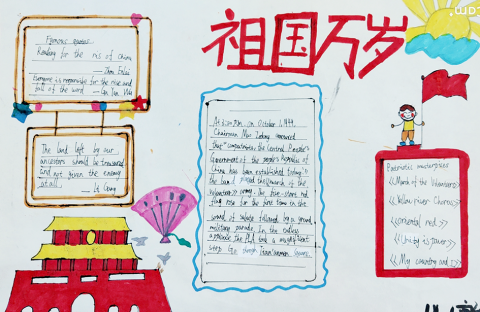 祖国万岁
Famous quotes
Reading for the rise of china
— Zhou Enlai
Everyone is responsible for the rise and
fall of the word
The land left by our
ancestors should be treasured
and not given the enemy
at all.
At 3 p.m. on October 1, 1949,
Chairman Mao Zedong announced
that the Central People's
Government of the people's Republic of
China has been established today."
the band played the march of the
Volunteers The five-starred
flag rose for the first time in the
sound of salute followed by a grand
military parade. In the endless
applause the PLA took a magnificent
step to through Tian'anmen Square.
Patriotic masterpieces
《March of the Volunteers》
《Yellow river Chorus》
《oriental red》
《Unity is power》
《My country and